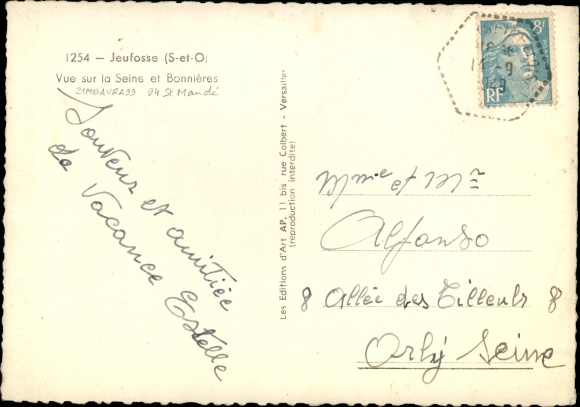 1254 — Jeufosse (S-et-O)
Vue sur la Seine et Bonnières
94 St Mandé
Souvenir et amitiée
de Vacance Estelle
Les Editions d'Art AP, 11 bis, rue Colbert - Versailles
(reproduction interdite)
8F
RF
Mme et Mr
Alfonso
8 Allée des Tilleuls 8
Orly Seine